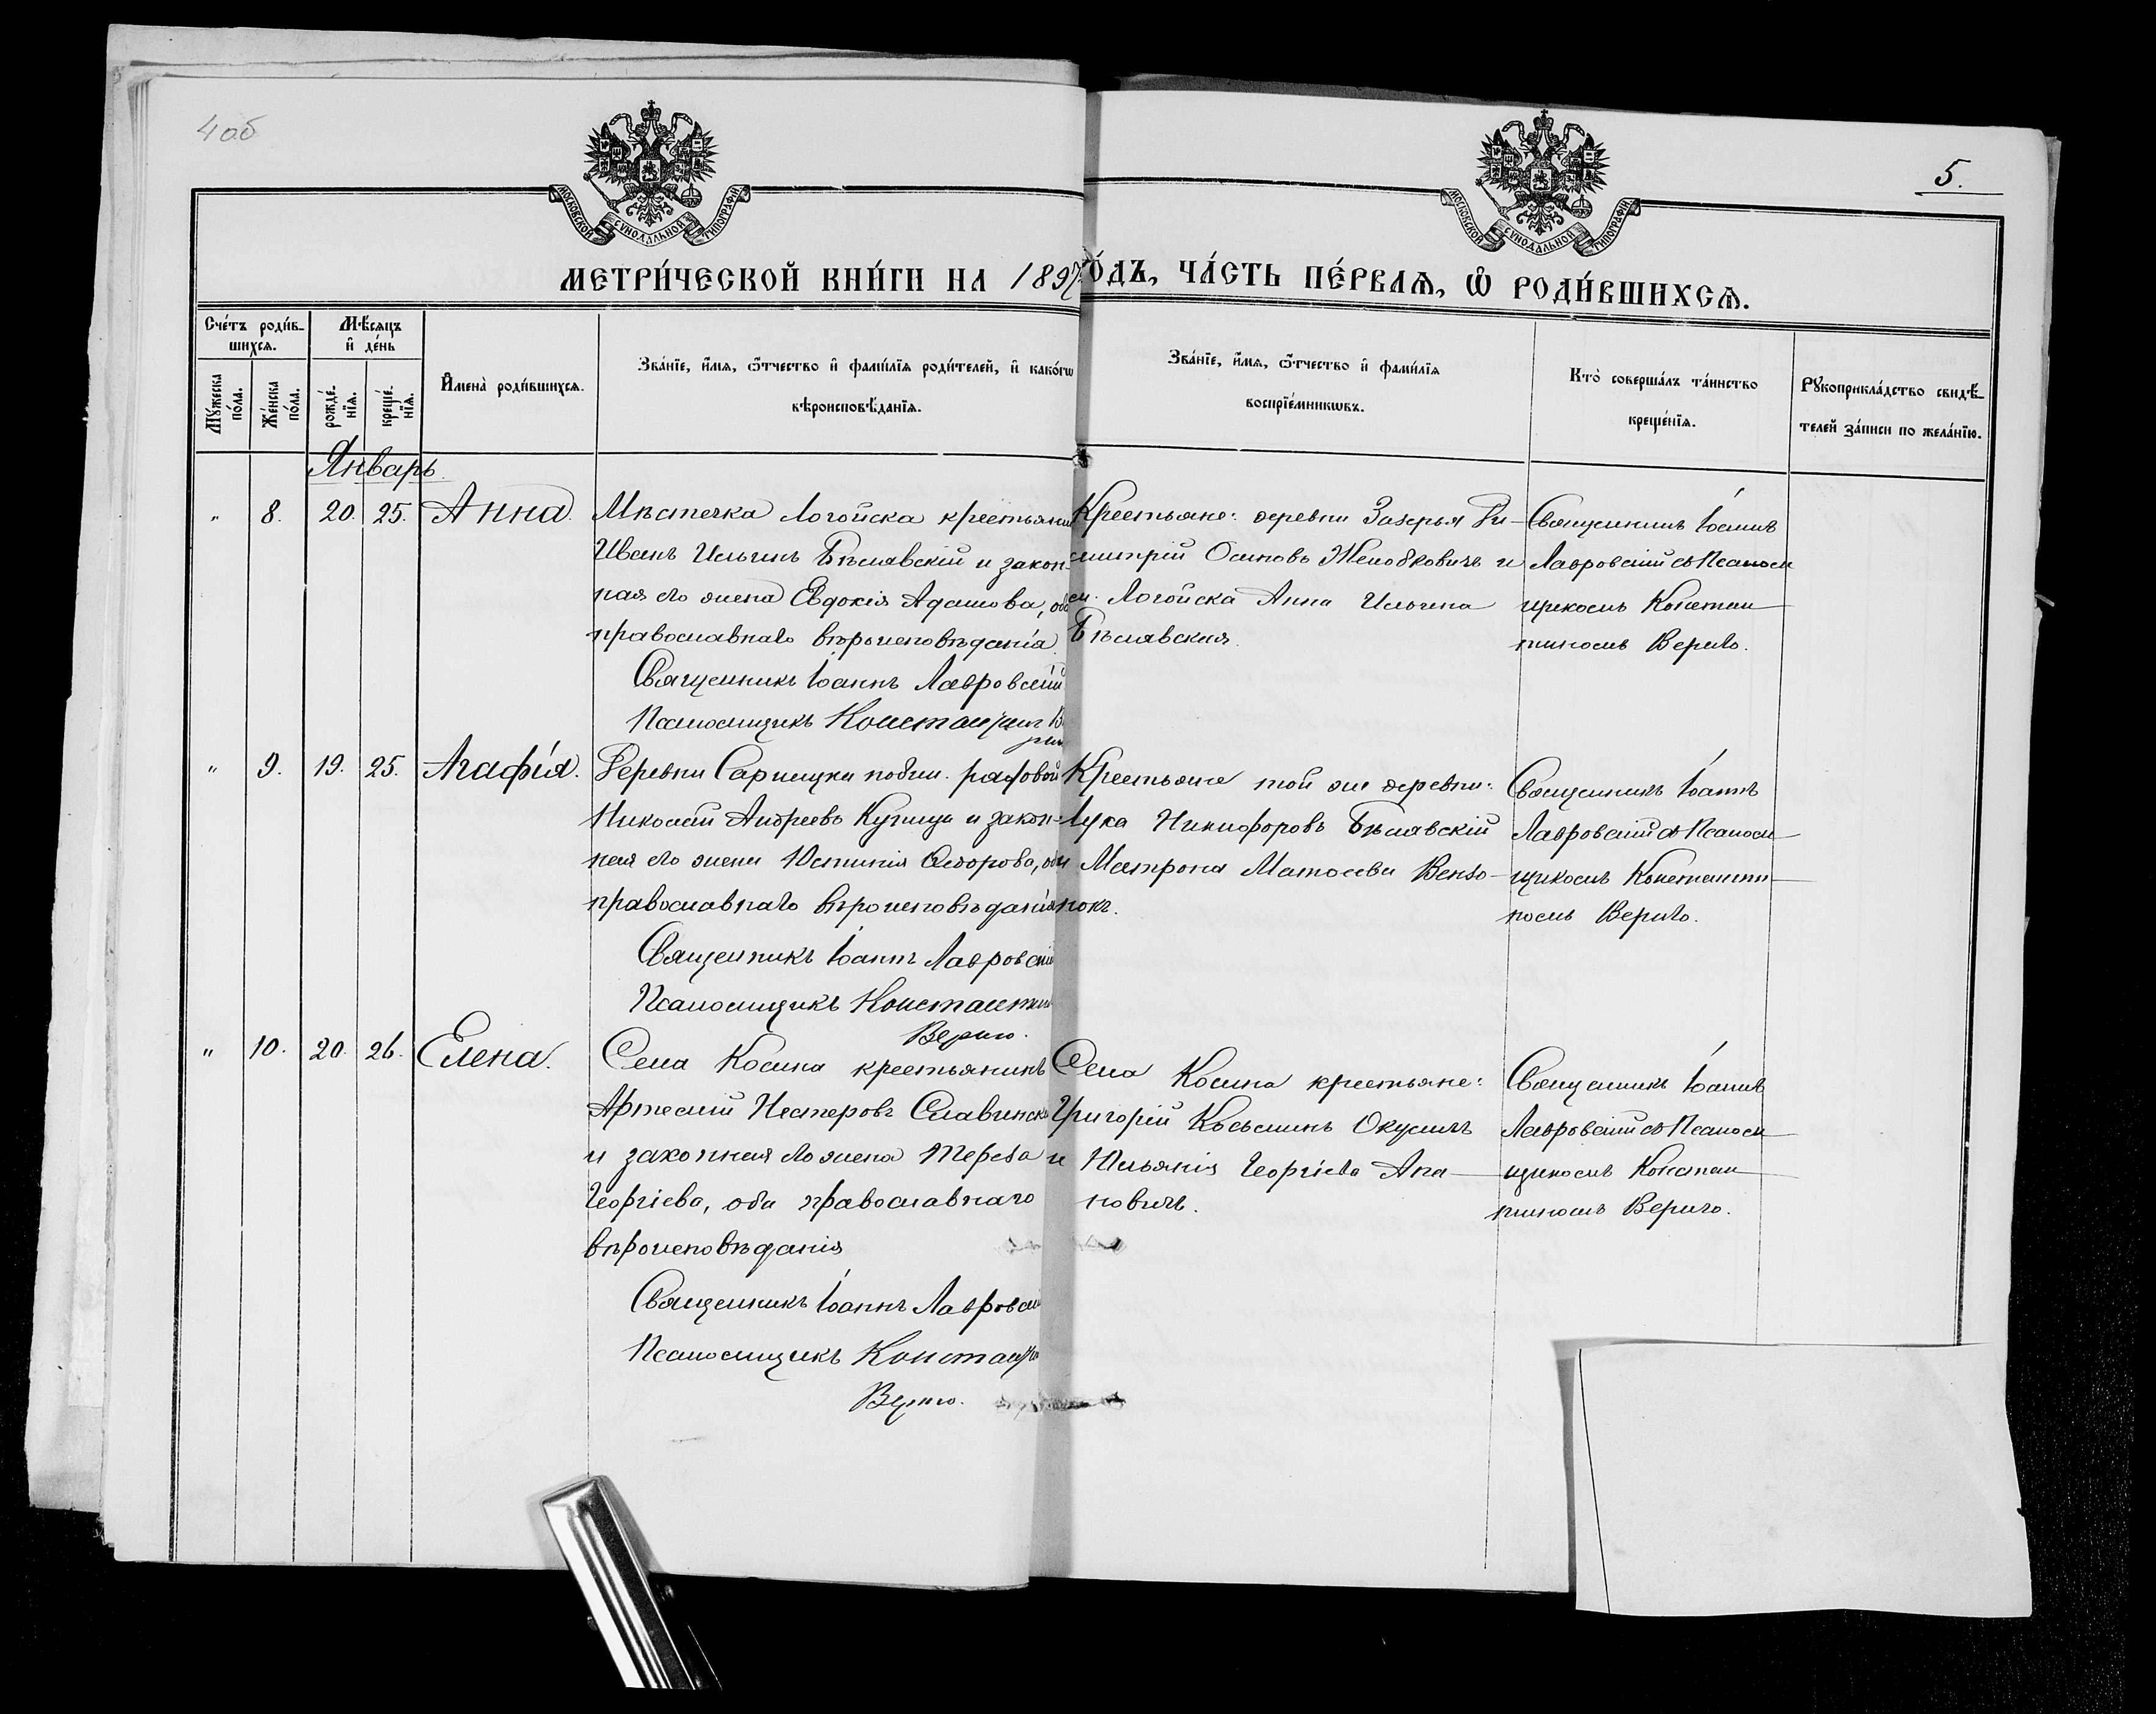 4 об
5.
МОСКОВСКОЙ СѴНОДАЛЬНОЙ ТИПОГРАФІИ
МОСКОВСКОЙ СѴНОДАЛЬНОЙ ТИПОГРАФІИ
МЕТРИ́ЧЕСКОЙ КНИ́ГИ НА 1897 ГО́ДЪ, ЧА́СТЬ ПЕ́РВАѦ, Ѡ҆ РОДИ́ВШИХСѦ.
Сче́тъ роди́в-
шихсѧ.
Мꙋ́жеска
по́ла.
Же́нска
по́ла.
Мѣ́сѧцъ
и҆ де́нь
рожде́-
нїѧ.
креще́-
нїѧ.
И҆мена̀ роди́вшихсѧ.
Зва́нїе, и҆́мѧ, ѻ҆́тчество и҆ фами́лїѧ роди́телей, и҆ како́гѡ
вѣроисповѣ́данїѧ.
Зва́нїе, и҆́мѧ, ѻ҆́тчество и҆ фами́лїѧ
воспрїе́мникѡвъ.
Кто̀ соверша́лъ та́инство
креще́нїѧ.
Рꙋкоприкла́дство свидѣ́-
телей за́писи по жела́нїю.
Январь.
" 8. 20. 25. Анна.
Мѣстечка Логойска крестьянинъ
Иванъ Ильинъ Бѣлявскій и закон-
ная его жена Евдокія Адамова, оба
православнаго вѣроисповѣданія.
Священникъ Іоаннъ Лавровскій
Псаломщикъ Константинъ
Крестьяне: деревни Заверья Ди-
митрій Осиповъ Жевобковичъ и
м. Логойска Анна Ильина
Бѣлявская.
Священникъ Іоаннъ
Лавровскій съ Псалом
щикомъ Констан
тиномъ Вериго.
" 9. 19. 25. Агафія.
Деревни Гарницки рядовой
Николай Андреевъ Купица и закон-
ная его жена Юстинія Ѳедорова, оба
православнаго вѣроисповѣданія
Священникъ Іоаннъ Лавровскій
Псаломщикъ Константинъ
Вериго.
Крестьяне той же деревни:
Лука Никифоровъ Бѣлявскій
и Матрона Матѳеева
нокъ.
Священникъ Іоаннъ
Лавровскій съ Псалом
щикомъ Константи
номъ Вериго.
" 10. 20. 26. Елена.
Села Косина крестьянинъ
Артемій Нестеровъ Славинскій
и законная его жена Тереза
Георгіева, оба православнаго
вѣроисповѣданія
Священникъ Іоаннъ Лавровскій
Псаломщикъ Константинъ
Вериго.
Села Косина крестьяне:
Григорій Косьминъ Окуличъ
и Юліанія Георгіева Апа
новичъ.
Священникъ Іоаннъ
Лавровскій съ Псалом
щикомъ Констан
тиномъ Вериго.